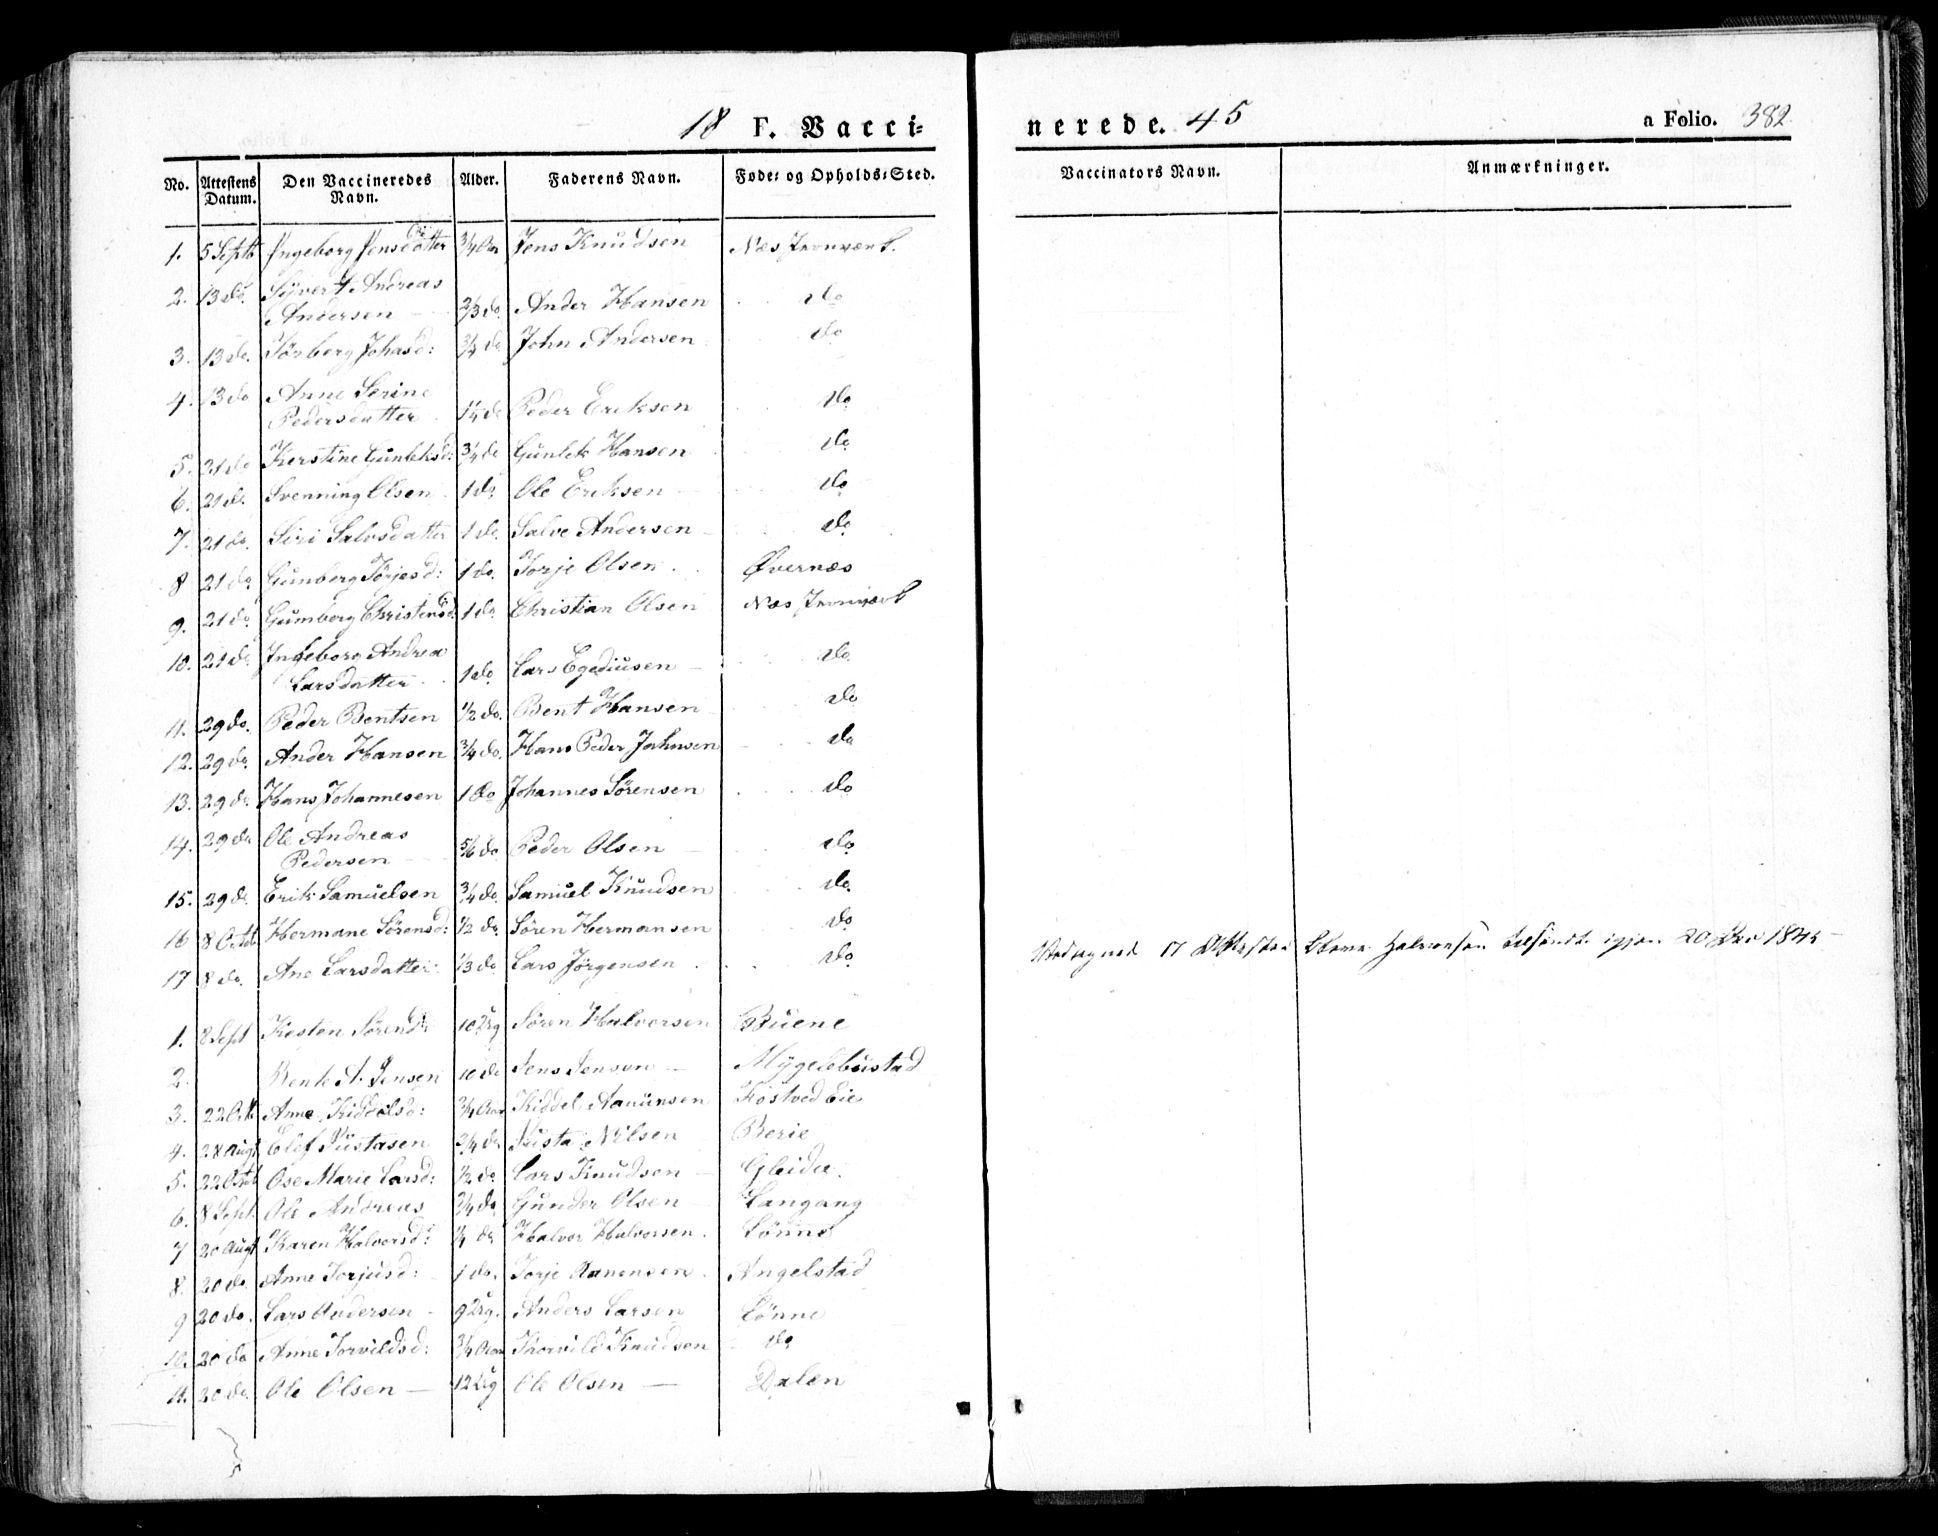 18 F. Vacci= nerede. 45 a Folio. 382
No. Attestens Datum. Den Vaccineredes Navn. Alder. Faderens Navn. Føde= og Opholds=Sted. Vaccinators Navn. Anmærkninger.
1. 5 Septb Ingeborg Jensdatter 3/4 Aar Jens Knudsen Næs Jernværk.
2. 13 do. Syvert Andreas
Andersen — 2/3 do Ander Hansen do
3. 13 do. Torberg Johasd: 3/4 do John Andersen do
4. 13 do Anne Serine
Pedersdatter 1 1/4 do Peder Eriksen do
5. 21 do Kerstine Gunleksd: 3/4 do Gunlek Hansen do
6. 21 do. Svenning Olsen 1 do Ole Eriksen do
7. 21 do. Siri Salvsdatter 1 do. Salve Andersen do
8 21 do Gunberg Torjesd: 1 do. Torje Olsen Øvernæs
9. 21 do. Gumborg Christensd: 1 do. Christian Olsen Næs Jernværk
10. 21 do Ingeborg Andrea
Larsdatter 1 do Lars Egediusen — do.
11. 29 do. Peder Bentsen 1/2 do. Bent Hansen do
12. 29 do. Ander Hansen 3/4 do. Hans Peder Johnsen do
13. 29 do Hans Johannesen 1 do Johannes Sørensen do
14. 29 do Ole Andreas
Pedersen — 5/6 do Peder Olsen do
15. 29 do. Erik Samuelsen 3/4 do. Samuel Knudsen do.
16 8 Octb Hermane Sørensd: 1/2 do. Søren Hermansen do
17 8 do. Ane Larsdatter 1/3 do Lars Jørgensen do
17 Attester Halvorsen tilsendt igjen 20 1845 —
1. 8 Sept Kesten Sørend: 10 Ug Søren Halvorsen Buene
2. Bente A. Jensen 10 do Jens Jensen — Myglebustad
3. 22 Octb Anne Kiddelsd: 3/4 Aar Kiddel Aanunsen Fostved Eie
4. 28 Augt Elef 3/4 do Nilsen Berie
5. 22 Octb Ose Marie Larsd: 1/2 do Lars Knudsen
6. 8 Sept. Ole Andreas 3/4 do Gunder Olsen Langang
7 20 Augt Karen Halvorsd: do Halvor Halvorsen. Lønne
8. 20 do. Anne Torjusd: 1 do. Torje Aanensen Angelstad
9 20 do. Lars Andersen 9 Ug. Anders Larsen Lønne
10. 20 do Anne Torvildsd: 3/4 Aar Thorvild Knudsen do
11. 20 do. Ole Olsen — 12 Ug Ole Olsen — Dalen